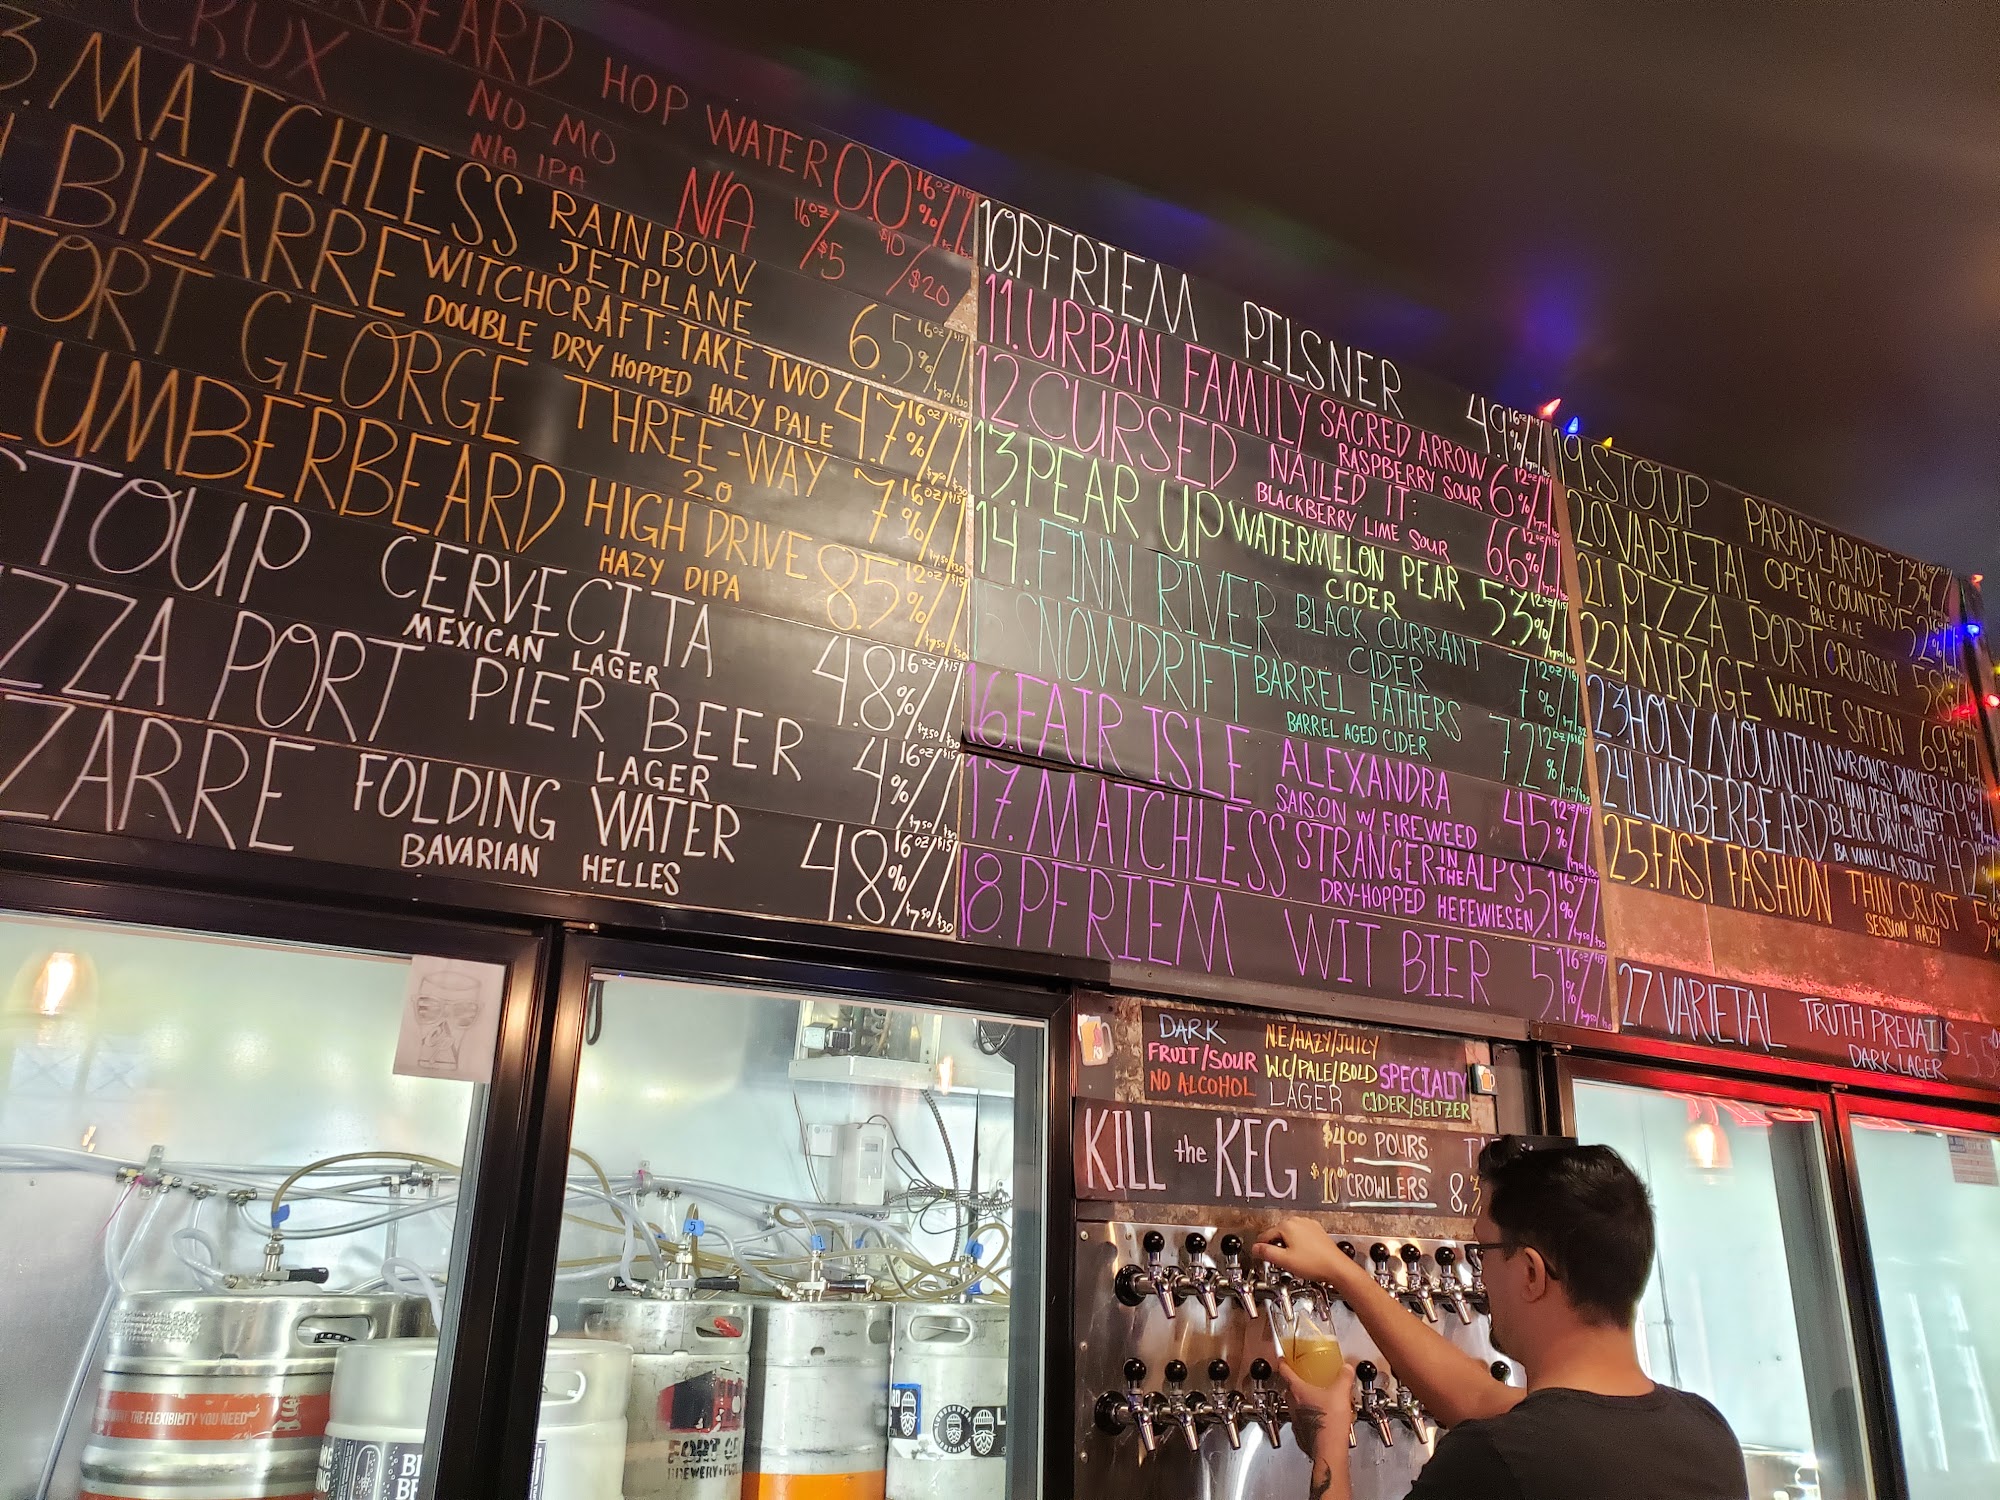 BEARD HOP WATER 0.0%
CRUX NO-MO N/A 16oz/$5 $10/$20
N/A IPA
3. MATCHLESS RAINBOW JETPLANE 6.5%
BIZARRE WITCHCRAFT: TAKE TWO 4.7%
DOUBLE DRY HOPPED HAZY PALE
FORT GEORGE THREE-WAY 2.0 7%
LUMBERBEARD HIGH DRIVE 8.5%
HAZY DIPA
STOUP CERVECITA 4.8%
MEXICAN LAGER
PIZZA PORT PIER BEER 4%
LAGER
BIZARRE FOLDING WATER 4.8%
BAVARIAN HELLES
10. PFRIEM PILSNER 4.9%
11. URBAN FAMILY SACRED ARROW 6%
RASPBERRY SOUR
12 CURSED NAILED IT: 6.6%
BLACKBERRY LIME SOUR
13. PEAR UP WATERMELON PEAR CIDER 5.3%
14. FINN RIVER BLACK CURRANT CIDER 7%
15 SNOWDRIFT BARREL FATHERS 7.2%
BARREL AGED CIDER
16. FAIR ISLE ALEXANDRA 4.5%
SAISON W/ FIREWEED
17. MATCHLESS STRANGER IN THE ALPS 5.1%
DRY-HOPPED HEFEWIESEN
18. PFRIEM WIT BIER 5.1%
19. STOUP PARADEARADE 7.3%
20. VARIETAL OPEN COUNTRY 5.2%
PALE ALE
21. PIZZA PORT CRUISIN'
22 MIRAGE WHITE SATIN 6.9%
23. HOLY MOUNTAIN WRONGS DARKER THAN DEATH OR NIGHT
24 LUMBERBEARD BLACK DAYLIGHT 14.2
BA VANILLA STOUT
25. FAST FASHION THIN CRUST
SESSION HAZY
27 VARIETAL TRUTH PREVAILS 5.5
DARK LAGER
DARK N.E/HAZY/JUICY
FRUIT/SOUR W.C/PALE/BOLD SPECIALTY
NO ALCOHOL LAGER CIDER/SELTZER
KILL the KEG $4.00 POURS
$10.00 CROWLERS 8,
THE FLEXIBILITY YOU NEED
FORT
BREWERY
5
1